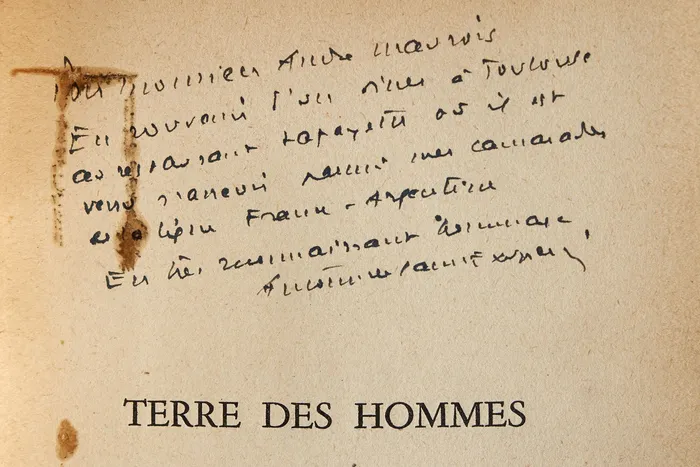 Pour monsieur André Maurois
En souvenir d'un dîner à Toulouse
au restaurant Lafayette où il est
venu s'asseoir parmi mes camarades
de la ligne France-Argentine
En très reconnaissant hommage
Antoine de Saint Exupéry
TERRE DES HOMMES